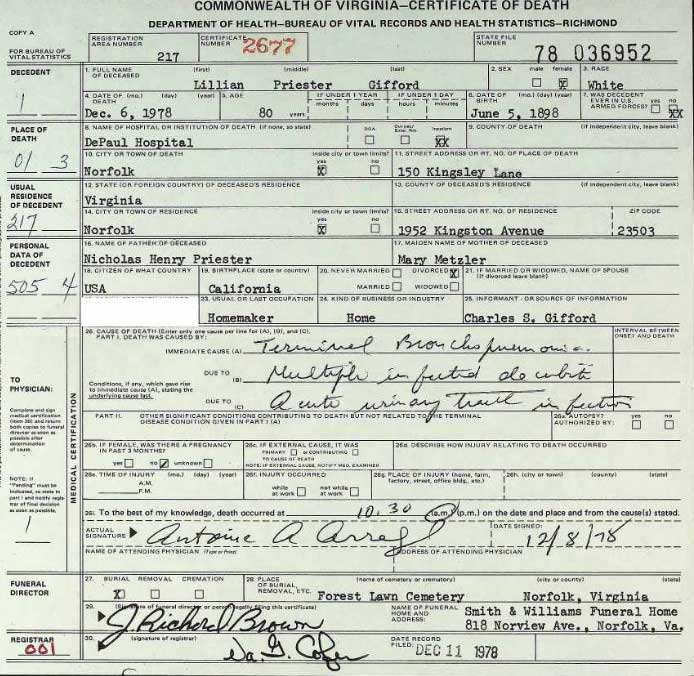 COMMONWEALTH OF VIRGINIA—CERTIFICATE OF DEATH
DEPARTMENT OF HEALTH—BUREAU OF VITAL RECORDS AND HEALTH STATISTICS—RICHMOND
COPY A
FOR BUREAU OF VITAL STATISTICS
REGISTRATION AREA NUMBER 217
CERTIFICATE NUMBER 2677
STATE FILE NUMBER 78 036952
DECEDENT
1
1. FULL NAME OF DECEASED (first) (middle) (last)
Lillian Priester Gifford
2. SEX male female X
3. RACE White
4. DATE OF DEATH (mo.) (day) (year) Dec. 6, 1978
5. AGE 80 years
IF UNDER 1 YEAR months days
IF UNDER 1 DAY hours minutes
6. DATE OF BIRTH (mo.) (day) (year) June 5, 1898
7. WAS DECEDENT EVER IN U.S. ARMED FORCES? yes no XX
PLACE OF DEATH
01 3
8. NAME OF HOSPITAL OR INSTITUTION OF DEATH (if none, so state)
DePaul Hospital
DOA Inpatient XX
9. COUNTY OF DEATH (if independent city, leave blank)
10. CITY OR TOWN OF DEATH Norfolk
inside city or town limits? yes X no
11. STREET ADDRESS OR RT. NO. OF PLACE OF DEATH
150 Kingsley Lane
USUAL RESIDENCE OF DECEDENT
217
12. STATE (OR FOREIGN COUNTRY) OF DECEASED'S RESIDENCE
Virginia
13. COUNTY OF DECEASED'S RESIDENCE (if independent city, leave blank)
14. CITY OR TOWN OF RESIDENCE Norfolk
inside city or town limits? yes X no
15. STREET ADDRESS OR RT. NO. OF RESIDENCE
1952 Kingston Avenue
ZIP CODE 23503
PERSONAL DATA OF DECEDENT
505 4
16. NAME OF FATHER OF DECEASED
Nicholas Henry Priester
17. MAIDEN NAME OF MOTHER OF DECEASED
Mary Metzler
18. CITIZEN OF WHAT COUNTRY USA
19. BIRTHPLACE (state or country) California
20. NEVER MARRIED DIVORCED X
MARRIED WIDOWED
21. IF MARRIED OR WIDOWED, NAME OF SPOUSE (if divorced leave blank)
23. USUAL OR LAST OCCUPATION Homemaker
24. KIND OF BUSINESS OR INDUSTRY Home
25. INFORMANT - OR SOURCE OF INFORMATION
Charles S. Gifford
TO PHYSICIAN:
Complete and sign medical certification (item 26) and return both copies to funeral director as soon as possible after determination of cause.
NOTE: If "Pending" must be indicated, so state in part 1 and notify registrar of final decision as soon as possible.
1
MEDICAL CERTIFICATION
26. CAUSE OF DEATH (Enter only one cause per line for (A), (B), and (C).
PART I. DEATH WAS CAUSED BY:
INTERVAL BETWEEN ONSET AND DEATH
IMMEDIATE CAUSE (A) Terminal Bronchopneumonia.
Conditions, if any, which gave rise to immediate cause (A), stating the underlying cause last.
DUE TO (B) Multiple infected decubiti
DUE TO (C) Acute urinary tract infection
PART II. OTHER SIGNIFICANT CONDITIONS CONTRIBUTING TO DEATH BUT NOT RELATED TO THE TERMINAL DISEASE CONDITION GIVEN IN PART I (A)
26a. AUTOPSY? AUTHORIZED BY: yes no
26b. IF FEMALE, WAS THERE A PREGNANCY IN PAST 3 MONTHS? yes no ✓ unknown
26c. IF EXTERNAL CAUSE, IT WAS PRIMARY or CONTRIBUTING TO CAUSE OF DEATH
NOTE: IF EXTERNAL CAUSE, NOTIFY MED. EXAMINER
26d. DESCRIBE HOW INJURY RELATING TO DEATH OCCURRED
26e. TIME OF INJURY (mo.) (day) (year)
A.M.
P.M.
26f. INJURY OCCURRED while at work not while at work
26g. PLACE OF INJURY (home, farm, factory, street, office bldg., etc.)
26h. (city or town) (county) (state)
26i. To the best of my knowledge, death occurred at 10.30 (a.m.) (p.m.) on the date and place and from the cause(s) stated.
ACTUAL SIGNATURE Antoine A
DATE SIGNED: 12/8/78
NAME OF ATTENDING PHYSICIAN (Type or Print)
ADDRESS OF ATTENDING PHYSICIAN
FUNERAL DIRECTOR
27. BURIAL X REMOVAL CREMATION
28. PLACE OF BURIAL, REMOVAL, ETC. (name of cemetery or crematory) (city or county) (state)
Forest Lawn Cemetery Norfolk, Virginia
29. (Signature of funeral director or person legally filing this certificate)
J. Richard Brown
NAME OF FUNERAL HOME AND ADDRESS:
Smith & Williams Funeral Home
818 Norview Ave., Norfolk, Va.
REGISTRAR
001
30. (signature of registrar)
DATE RECORD FILED: DEC 11 1978